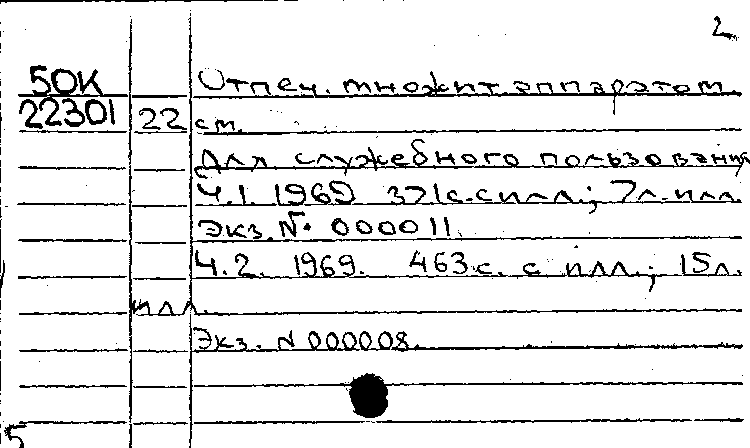 2
50К Отпеч. множит. аппаратом.
22301 22 см.
Для служебного пользования
Ч.1. 1969 371с. с илл.; 7л. илл.
Экз. № 000011.
Ч.2. 1969. 463с. с илл.; 15л.
илл.
Экз. N 000008.
5